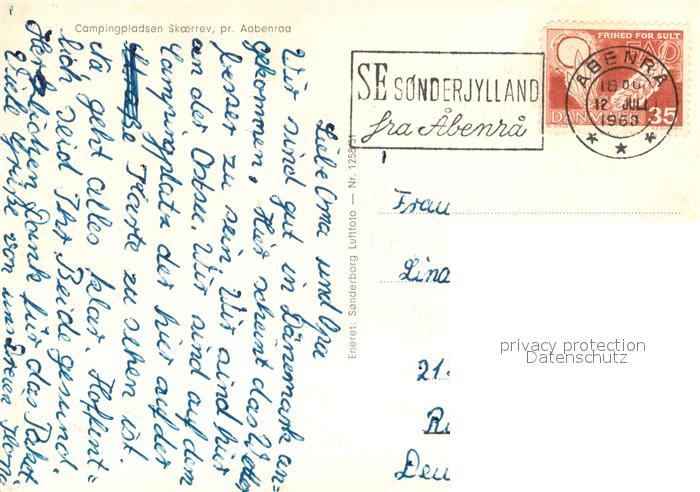 Campingpladsen Skærrev, pr. Aabenraa
Liebe Oma und Opa
Wir sind gut in Dänemark an=
gekommen, Hier scheint das Wetter
besser zu sein. Wir sind hier
an der Ostsee. Wir sind auf dem
Campingplatz der hier auf der
Karte zu sehen ist.
geht alles klar Hoffent=
lich seid Ihr Beide gesund.
Herzlichen Dank für das Paket
Viele Grüße von uns Dreien
Eneret: Sønderborg Luftfoto — Nr. 1258/51
SE SØNDERJYLLAND
fra Åbenrå
FRIHED FOR SULT
FAO
DANMARK 35
ÅBENRÅ
12 JULI
1963
Frau
Lina
21
Deu
privacy protection
Datenschutz